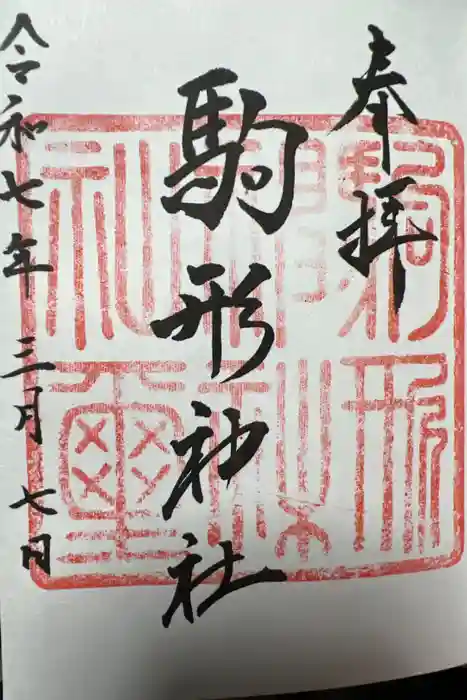 奉拝
駒形神社
令和七年三月七日
駒形
神社
社璽